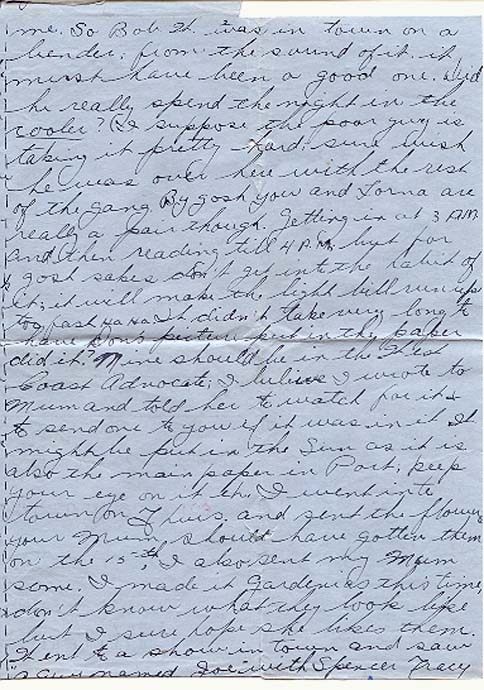 me. So Bob H. was in town on a
bender; from the sound of it. it
must have been a good one. Did
he really spend the night in the
cooler? (I suppose the poor guy is
taking it pretty hard; sure wish
he was over here with the rest
of the gang. By gosh you and Lorna are
really a pair though. Getting in at 3 A.M.
and then reading till 4 A.M. but for
gosh sakes don't get into the habit of
it; it will make the light bill run up
too fast Ha Ha. It didn't take very long to
have Don's picture put in the paper
did it? Mine should be in the West
Coast Advocate; I believe I wrote to
Mum and told her to watch for it &
to send one to you if it was in it. It
might be put in the Sun as it is
also the main paper in Port; keep
your eye on it eh. I went into
town on Thurs. and sent the flowers
your Mum should have gotten them
on the 15th, I also sent my Mum
some. I made it Gardenias this time,
don't know what they look like
but I sure hope she likes them.
Went to a show in town and saw
"a Guy named Joe" with Spencer Tracy